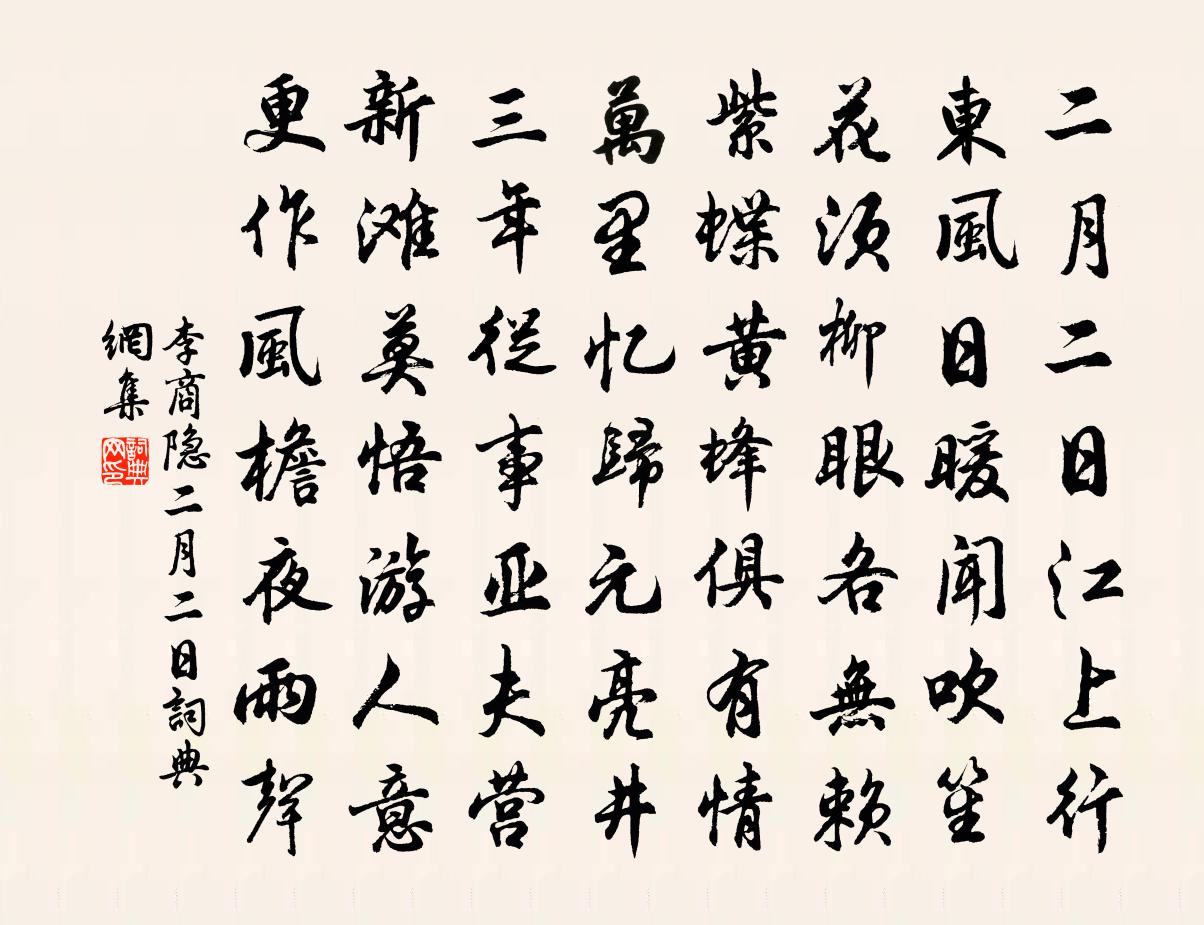 二月二日江上行
東風日暖聞吹笙
花须柳眼各無賴
紫蝶黄蜂俱有情
萬里忆歸元亮井
三年從事亚夫营
新滩莫悟游人意
更作風檐夜雨聲
李商隐二月二日詞典
網集
詞典网印